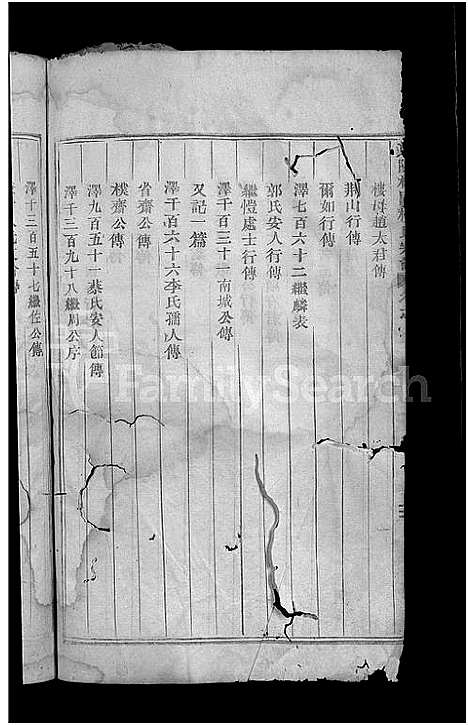 樓母趙太君傳
荆山行傳
爾如行傳
澤七百六十二繼麟表
郭氏安人行傳
繼愷處士行傳
澤千百三十一南城公傳
又記一篇
澤千百六十六李氏孺人傳
省齋公傳
樸齋公傳
澤九百五十一蔡氏安人節傳
澤千三百九十八繼周公序
澤十三百五十七繼佐公傳
FamilySearch